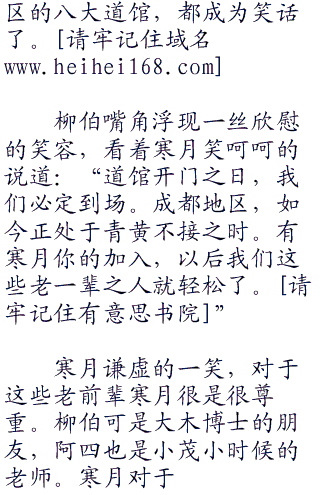 区的八大道馆，都成为笑话
了。[请牢记住域名
www.heihei168.com]
柳伯嘴角浮现一丝欣慰
的笑容，看着寒月笑呵呵的
说道：“道馆开门之日，我
们必定到场。成都地区，如
今正处于青黄不接之时。有
寒月你的加入，以后我们这
些老一辈之人就轻松了。[请
牢记住有意思书院]”
寒月谦虚的一笑，对于
这些老前辈寒月很是很尊
重。柳伯可是大木博士的朋
友，阿四也是小茂小时候的
老师。寒月对于